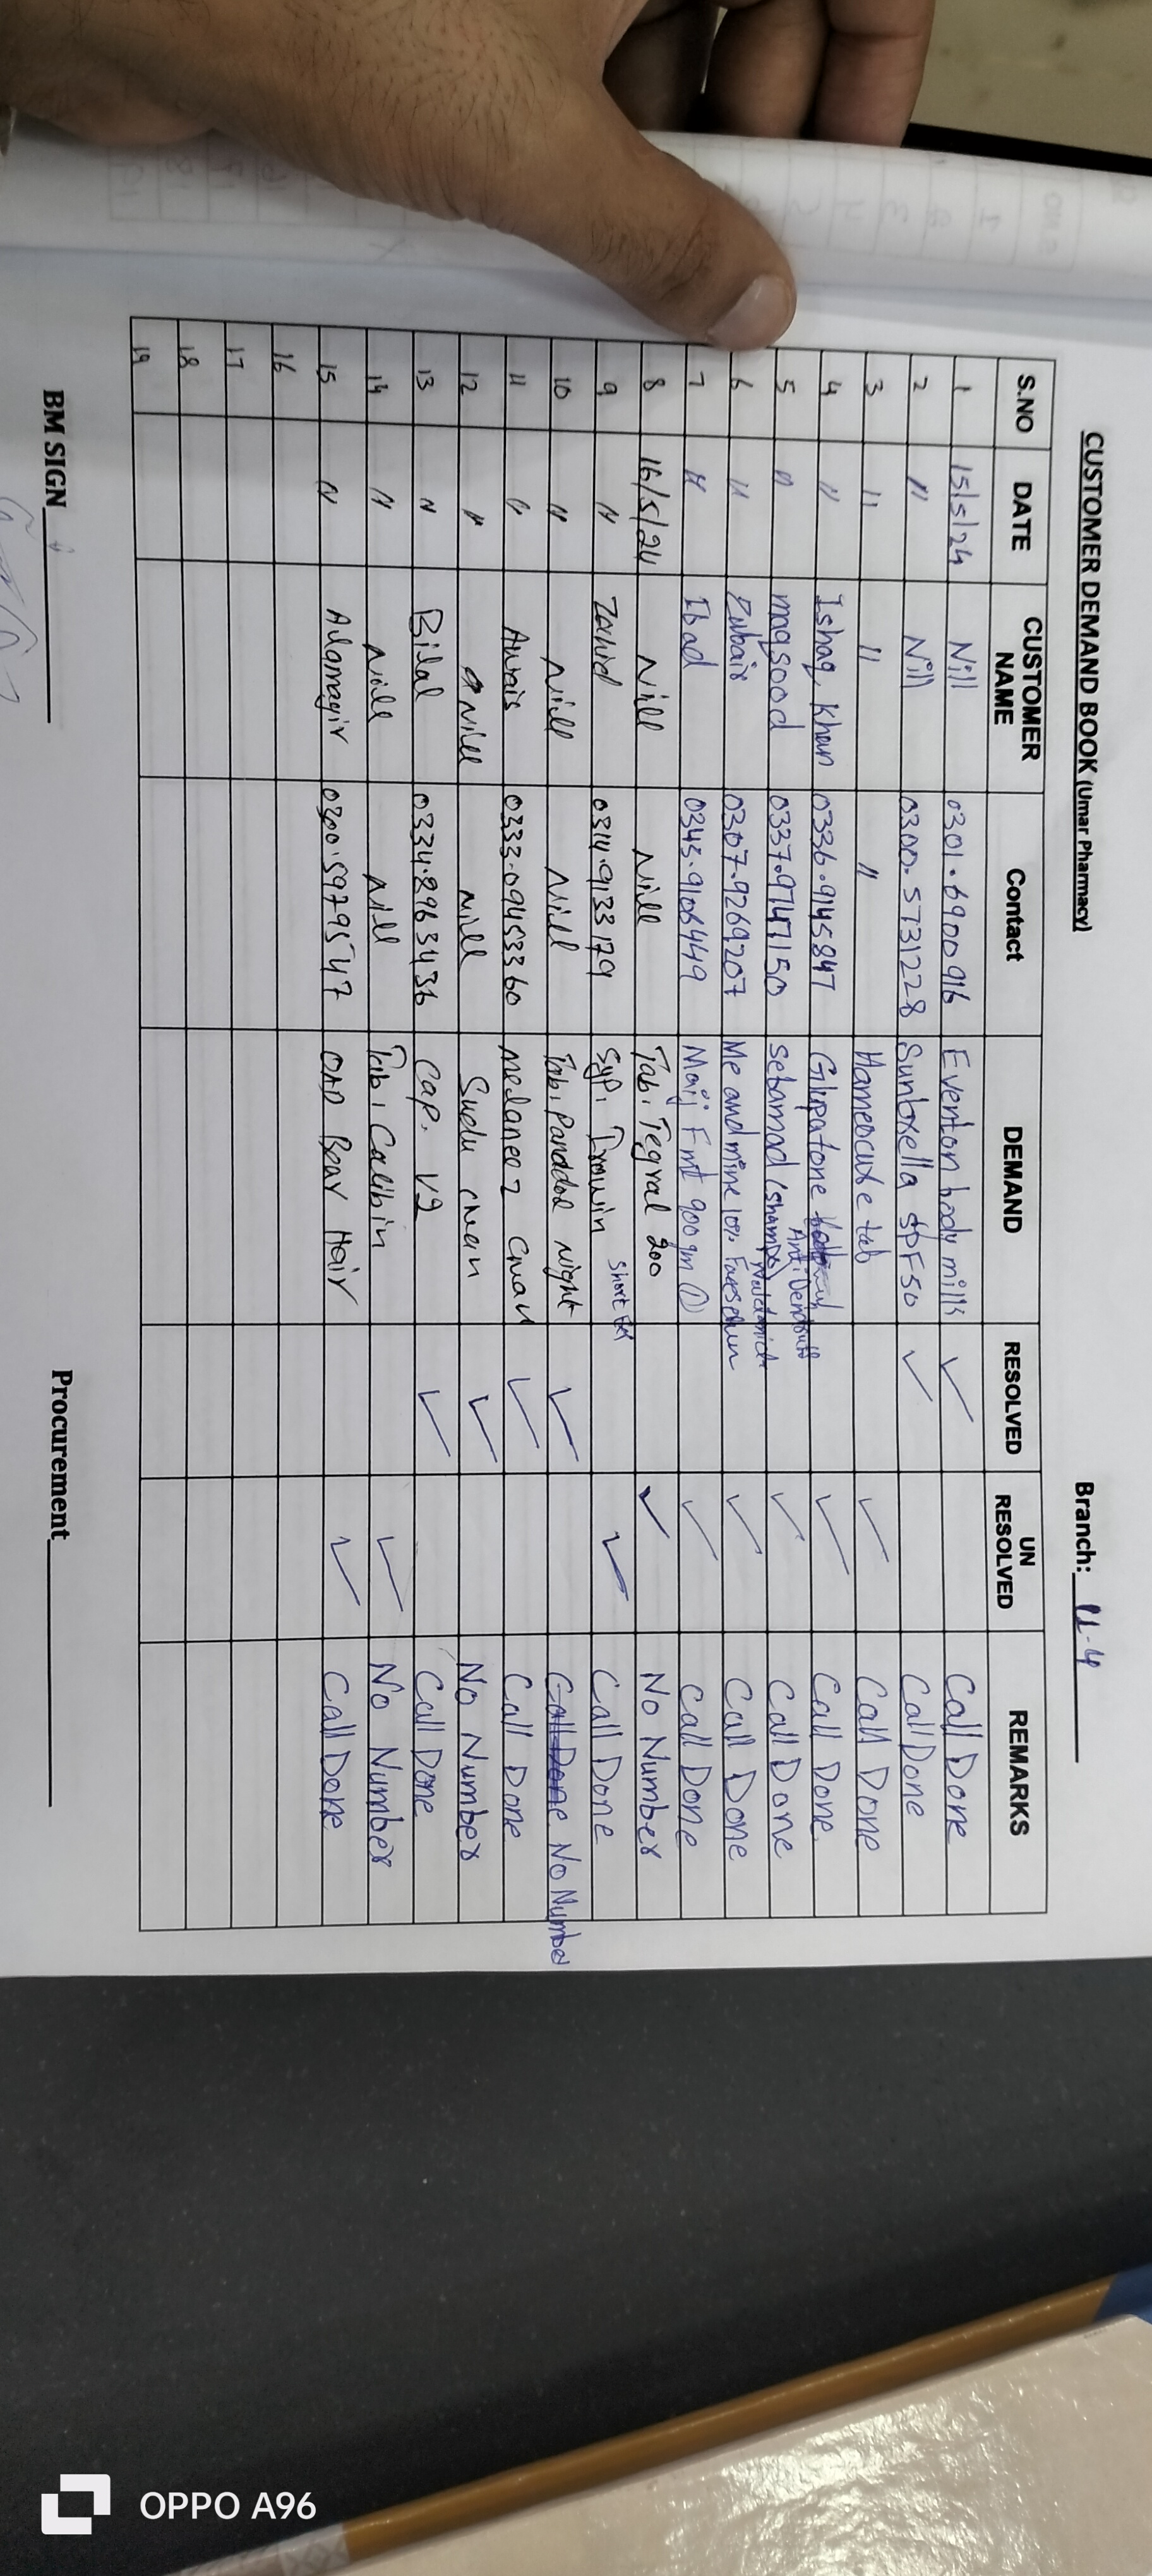 CUSTOMER DEMAND BOOK (Umar Pharmacy) Branch:
S.NO DATE CUSTOMER NAME Contact DEMAND RESOLVED UN RESOLVED REMARKS
1 15/5/24 Nill 0301.6900916 Eventon body mills ✓ Call Done
2 " Nill 0300.5731228 SPF50 ✓ Call Done
3 " " " tab ✓ Call Done
4 " Ishaq, Khan 0336.9145847 ✓ Call Done.
5 " maqsood 0337.9747150 Sebamad (Shampo) Anti ✓ Call Done
6 " Zubair 0307.9269207 Me and mine 10% ✓ Call Done
7 " Ibad 0345.9106449 900 gm ✓ Call Done
8 16/5/24 Nill Nill Tab. Tegral 200 ✓ No Number
9 " Zahid 0314.9133179 Syp. Short ✓ Call Done
10 " Nill Nill Tab. Panadol Night ✓ Call Done No Number
11 " Awais 0333.09453360 ✓ Call Done
12 " Nill Nill ✓ No Number
13 " Bilal 0334.8963436 Cap. ✓ Call Done
14 " Nill Nill Tab. ✓ No Number
15 " Alamagir 0300.5979547 Hair ✓ Call Done
16
17
18
19
BM SIGN Procurement
OPPO A96